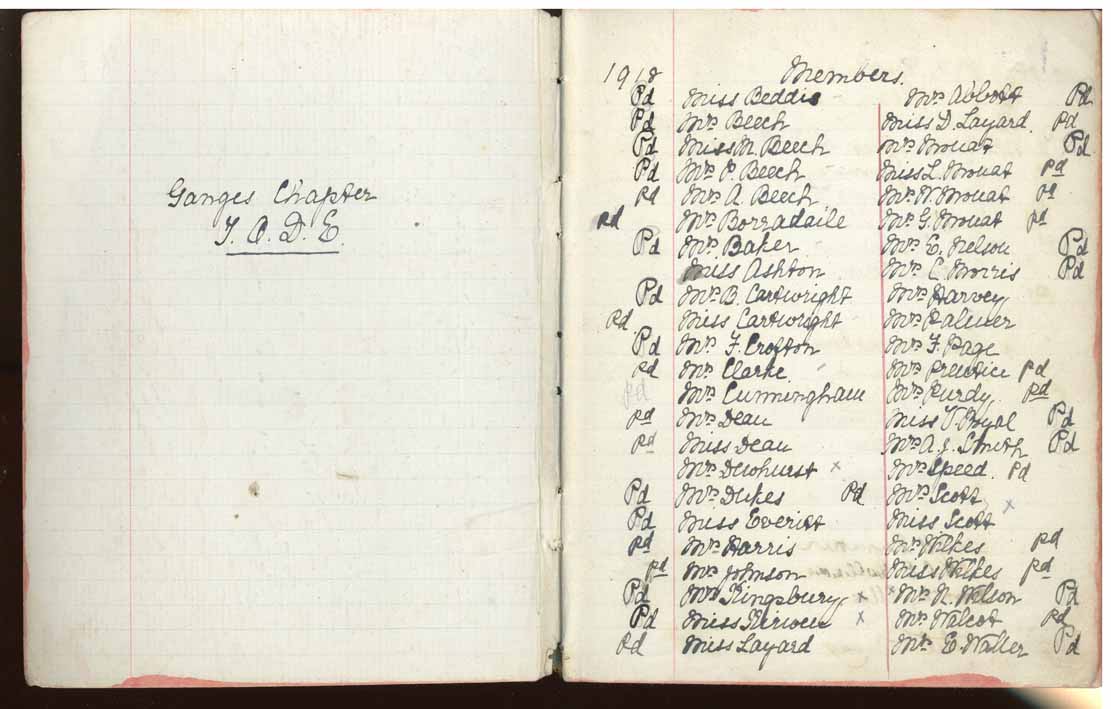 Ganges Chapter
I. O. D. E.
1918 Members.
Pd Miss Beddis Mrs Abbott Pd
Pd Mrs Beech Miss D. Layard Pd
Pd Miss M. Beech Mrs Mouat Pd
Pd Mrs P. Beech Miss L. Mouat Pd
Pd Mrs A. Beech Mrs W. Mouat Pd
Pd Mrs Borradaile Mrs G. Mouat Pd
Pd Mrs Baker Mrs E. Nelson Pd
Miss Ashton Mrs C. Morris Pd
Pd Mrs B. Cartwright Mrs Harvey
Pd Miss Cartwright Mrs Palmer
Pd Mrs F. Crofton Mrs F. Page
Pd Mrs Clarke Mrs Prentice Pd
Pd Mrs Cunningham Mrs Purdy Pd
Pd Mrs Dean Miss Pd
Pd Miss Dean Mrs A. J. Smith Pd
Mrs Dewhurst x Mrs Speed Pd
Pd Mrs Dukes Pd Mrs Scott
Pd Miss Everitt Miss Scott x
Pd Mrs Harris Mrs Wilkes Pd
Pd Mrs Johnson Miss Wilkes Pd
Pd Mrs Kingsbury x x Mrs N. Wilson Pd
Pd Miss x Mrs Walcot Pd
Pd Miss Layard Mrs E. Walter Pd